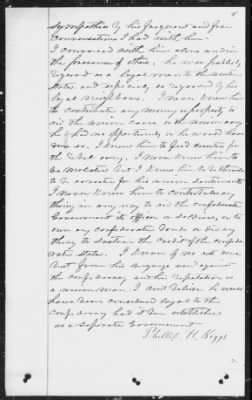 sympathies by his language and from
conversations I had with him.
I conversed with him alone and in
the presence of others. he was publicly
regarded as a loyal man to the United
States, and especially so regarded by his
loyal neighbors. I never knew him
to contribute any money or property to
aid the union cause or the union army
he had no opportunity or he would have
done so. I knew him to feed deserters from
the Rebel army. I never knew him to
be molested but I knew him to be threatened
to be arrested for his union sentiments
I never knew him to contribute any
thing in any way to aid the confederate
Government its officers or soldiers, or to
own any confederate bonds or did any
thing to sustain the credit of the confede
rate states. I know of no act done
but from his language and against
the confederacy and his reputation as
a union man. I don't believe he would
have been considered loyal to the
confederacy had it been established
as a seperate Government
H. Biggs